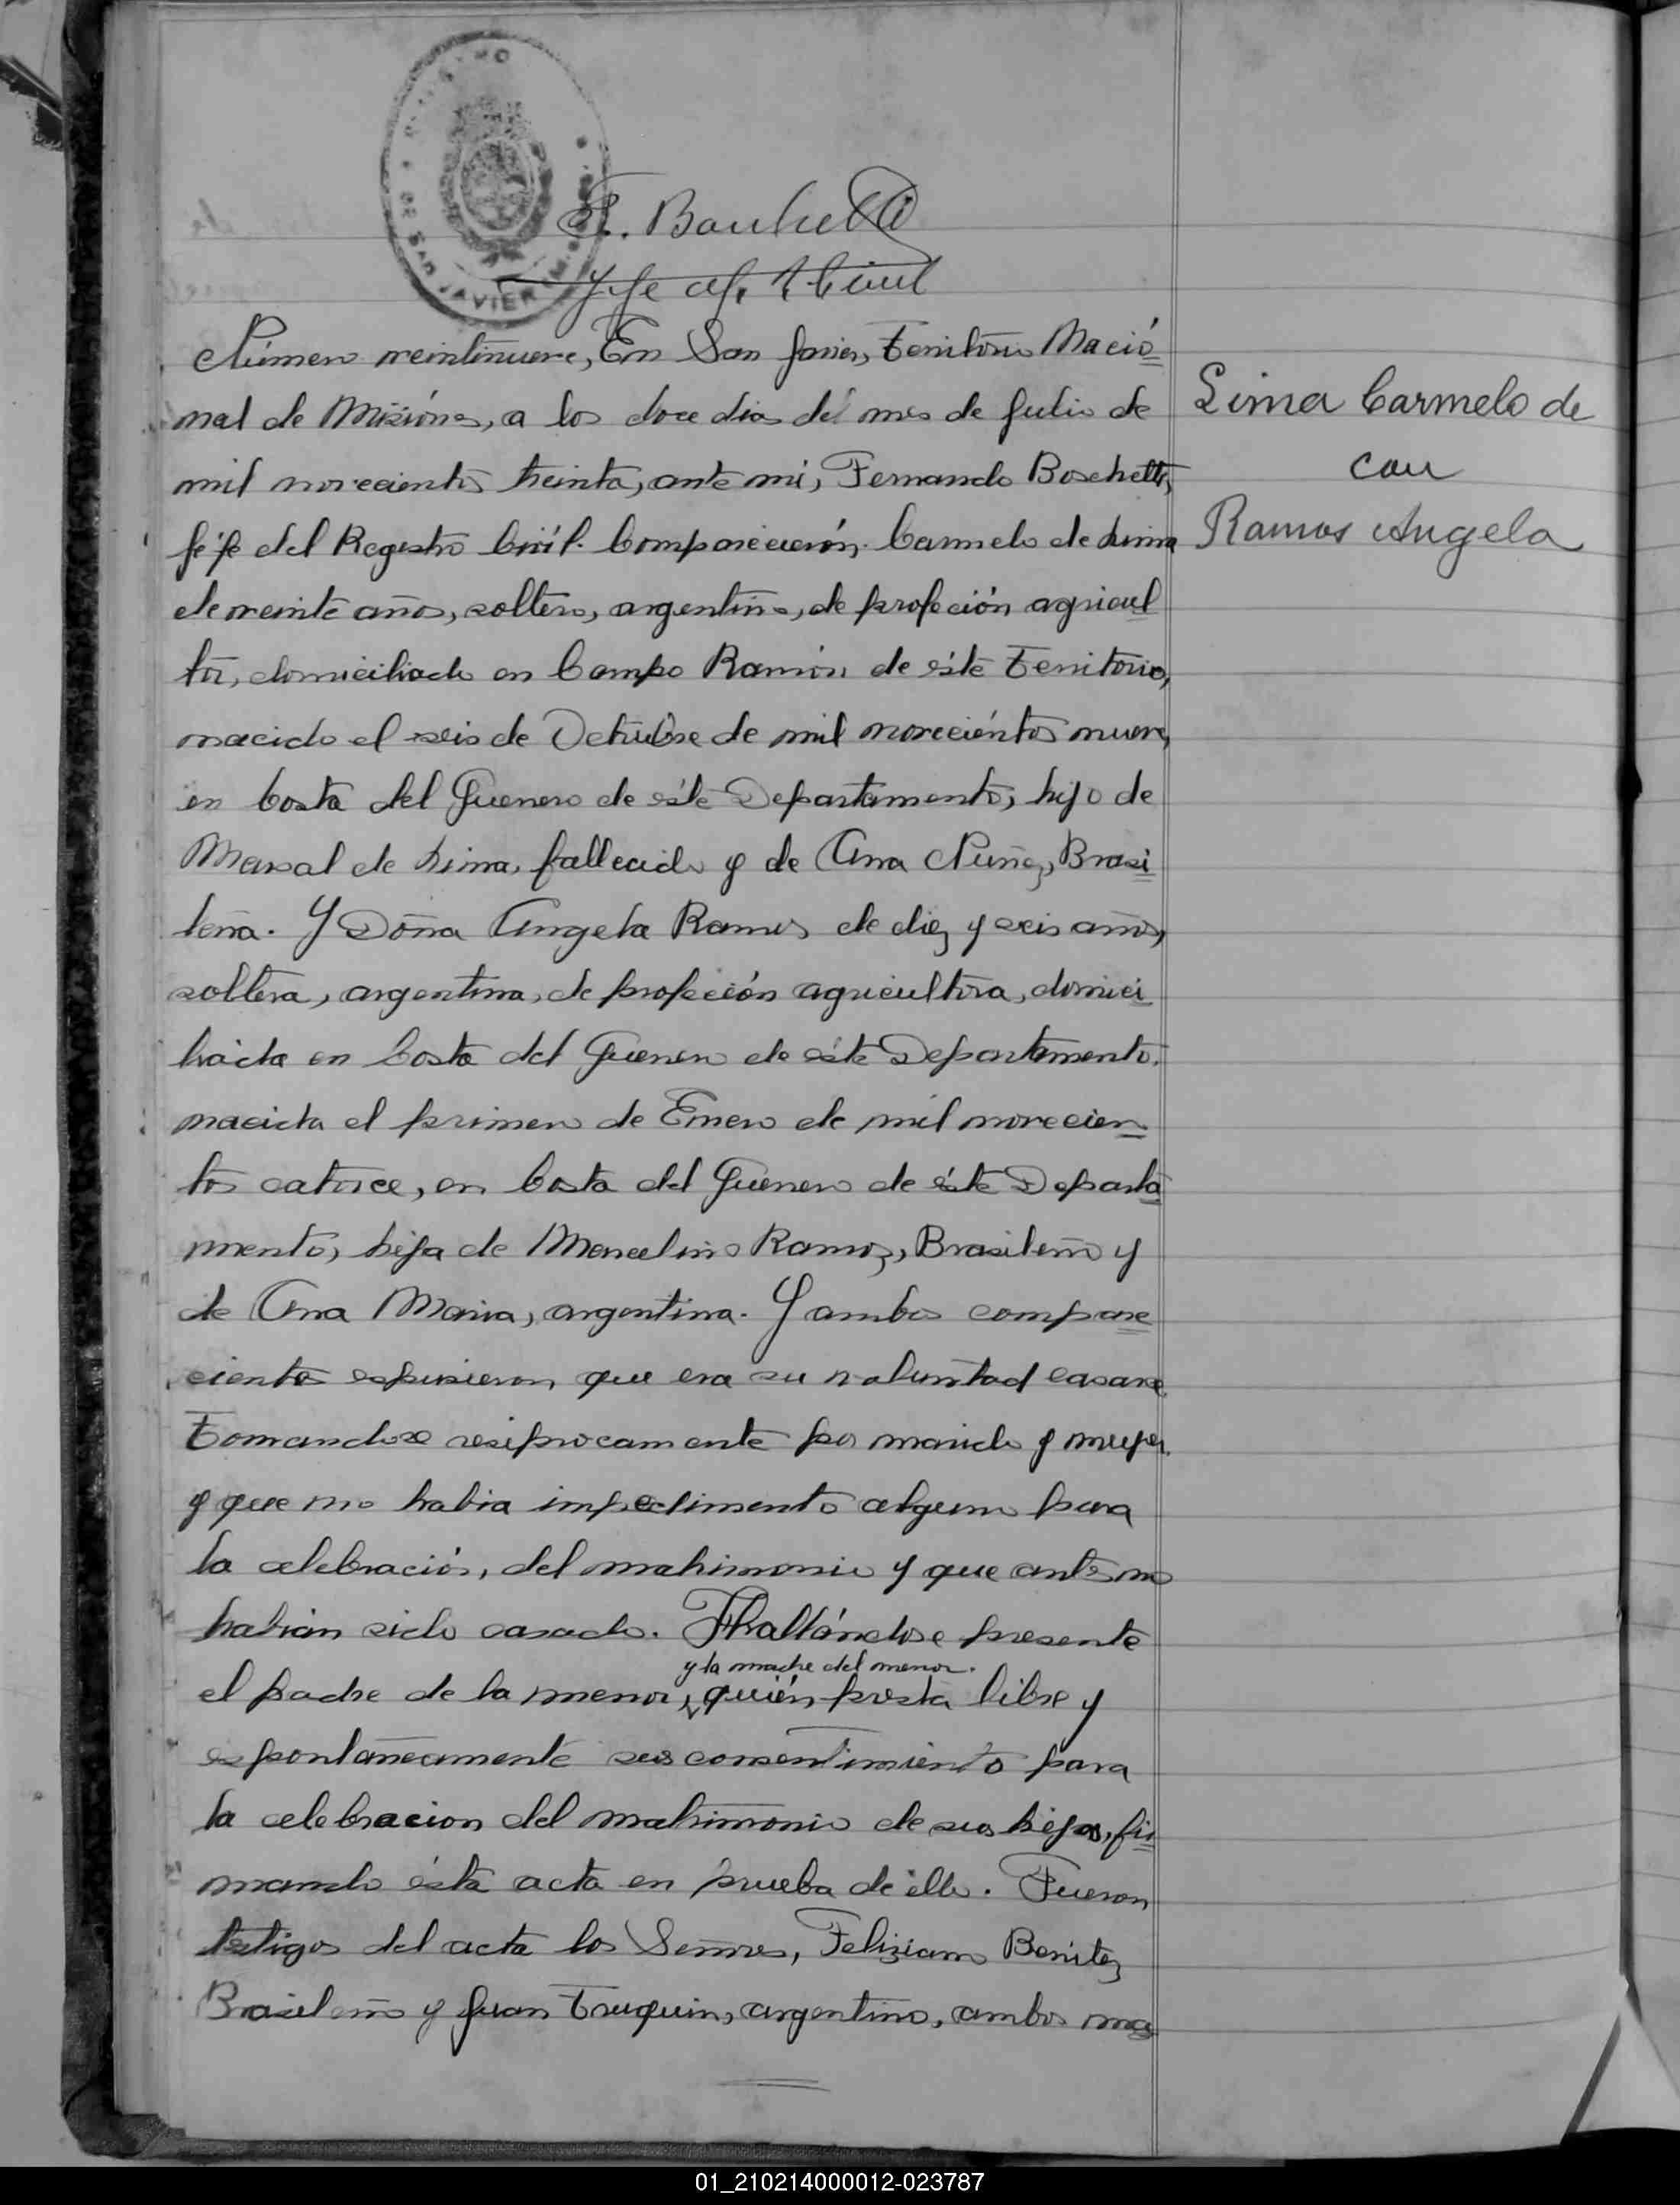 DE SAN JAVIER
F. Boschetti
Jefe of. R. Civil
Número veintinueve, En San Javier, Territorio Nacio
nal de Misiónes, a los doce dias del mes de Julio de
mil novecientos treinta, ante mi, Fernando Boschetti,
Jefe del Registro Civil. Comparecierón. Carmelo de Lima
de veinte años, soltero, argentino, de profeción agricul
tor, domiciliado en Campo Ramón de éste Territorio,
nacido el seis de Octubre de mil novecientos nueve,
en Costa del Guerrero de éste Departamento, hijo de
Marsal de Lima, fallecido y de Ana Nuñez, Brasi
leña. Y Doña Angela Ramos de diez y seis años,
soltera, argentina, de profeción agricultora, domici
liada en Costa del Guerrero de éste Departamento.
nacida el primero de Enero de mil novecien
tos catorce, en Costa del Guerrero de éste Departa
mento, hija de Marcelino Ramoz, Brasileño y
de Ana Maria, argentina. Y ambos compare
cientes espusieron, que era su voluntad casarse,
Tomandose resiprocamente por marido y mujer.
y que no habia impedimento alguno para
la celebración, del matrimonio y que antes no
habian sido casado. Hallándose presente
y la madre del menor.
el padre de la menor, quién presta libre y
espontaneamente sus consentimiento para
la celebracion del matrimonio de sus hijos, fir
mando ésta acta en prueba de éllo. Fueron
testigos del acta los Señores, Feliziano Benitez
Brasileño y Juan Truquin, argentino, ambos ma
Lima Carmelo de
con
Ramos Angela
01_210214000012-023787